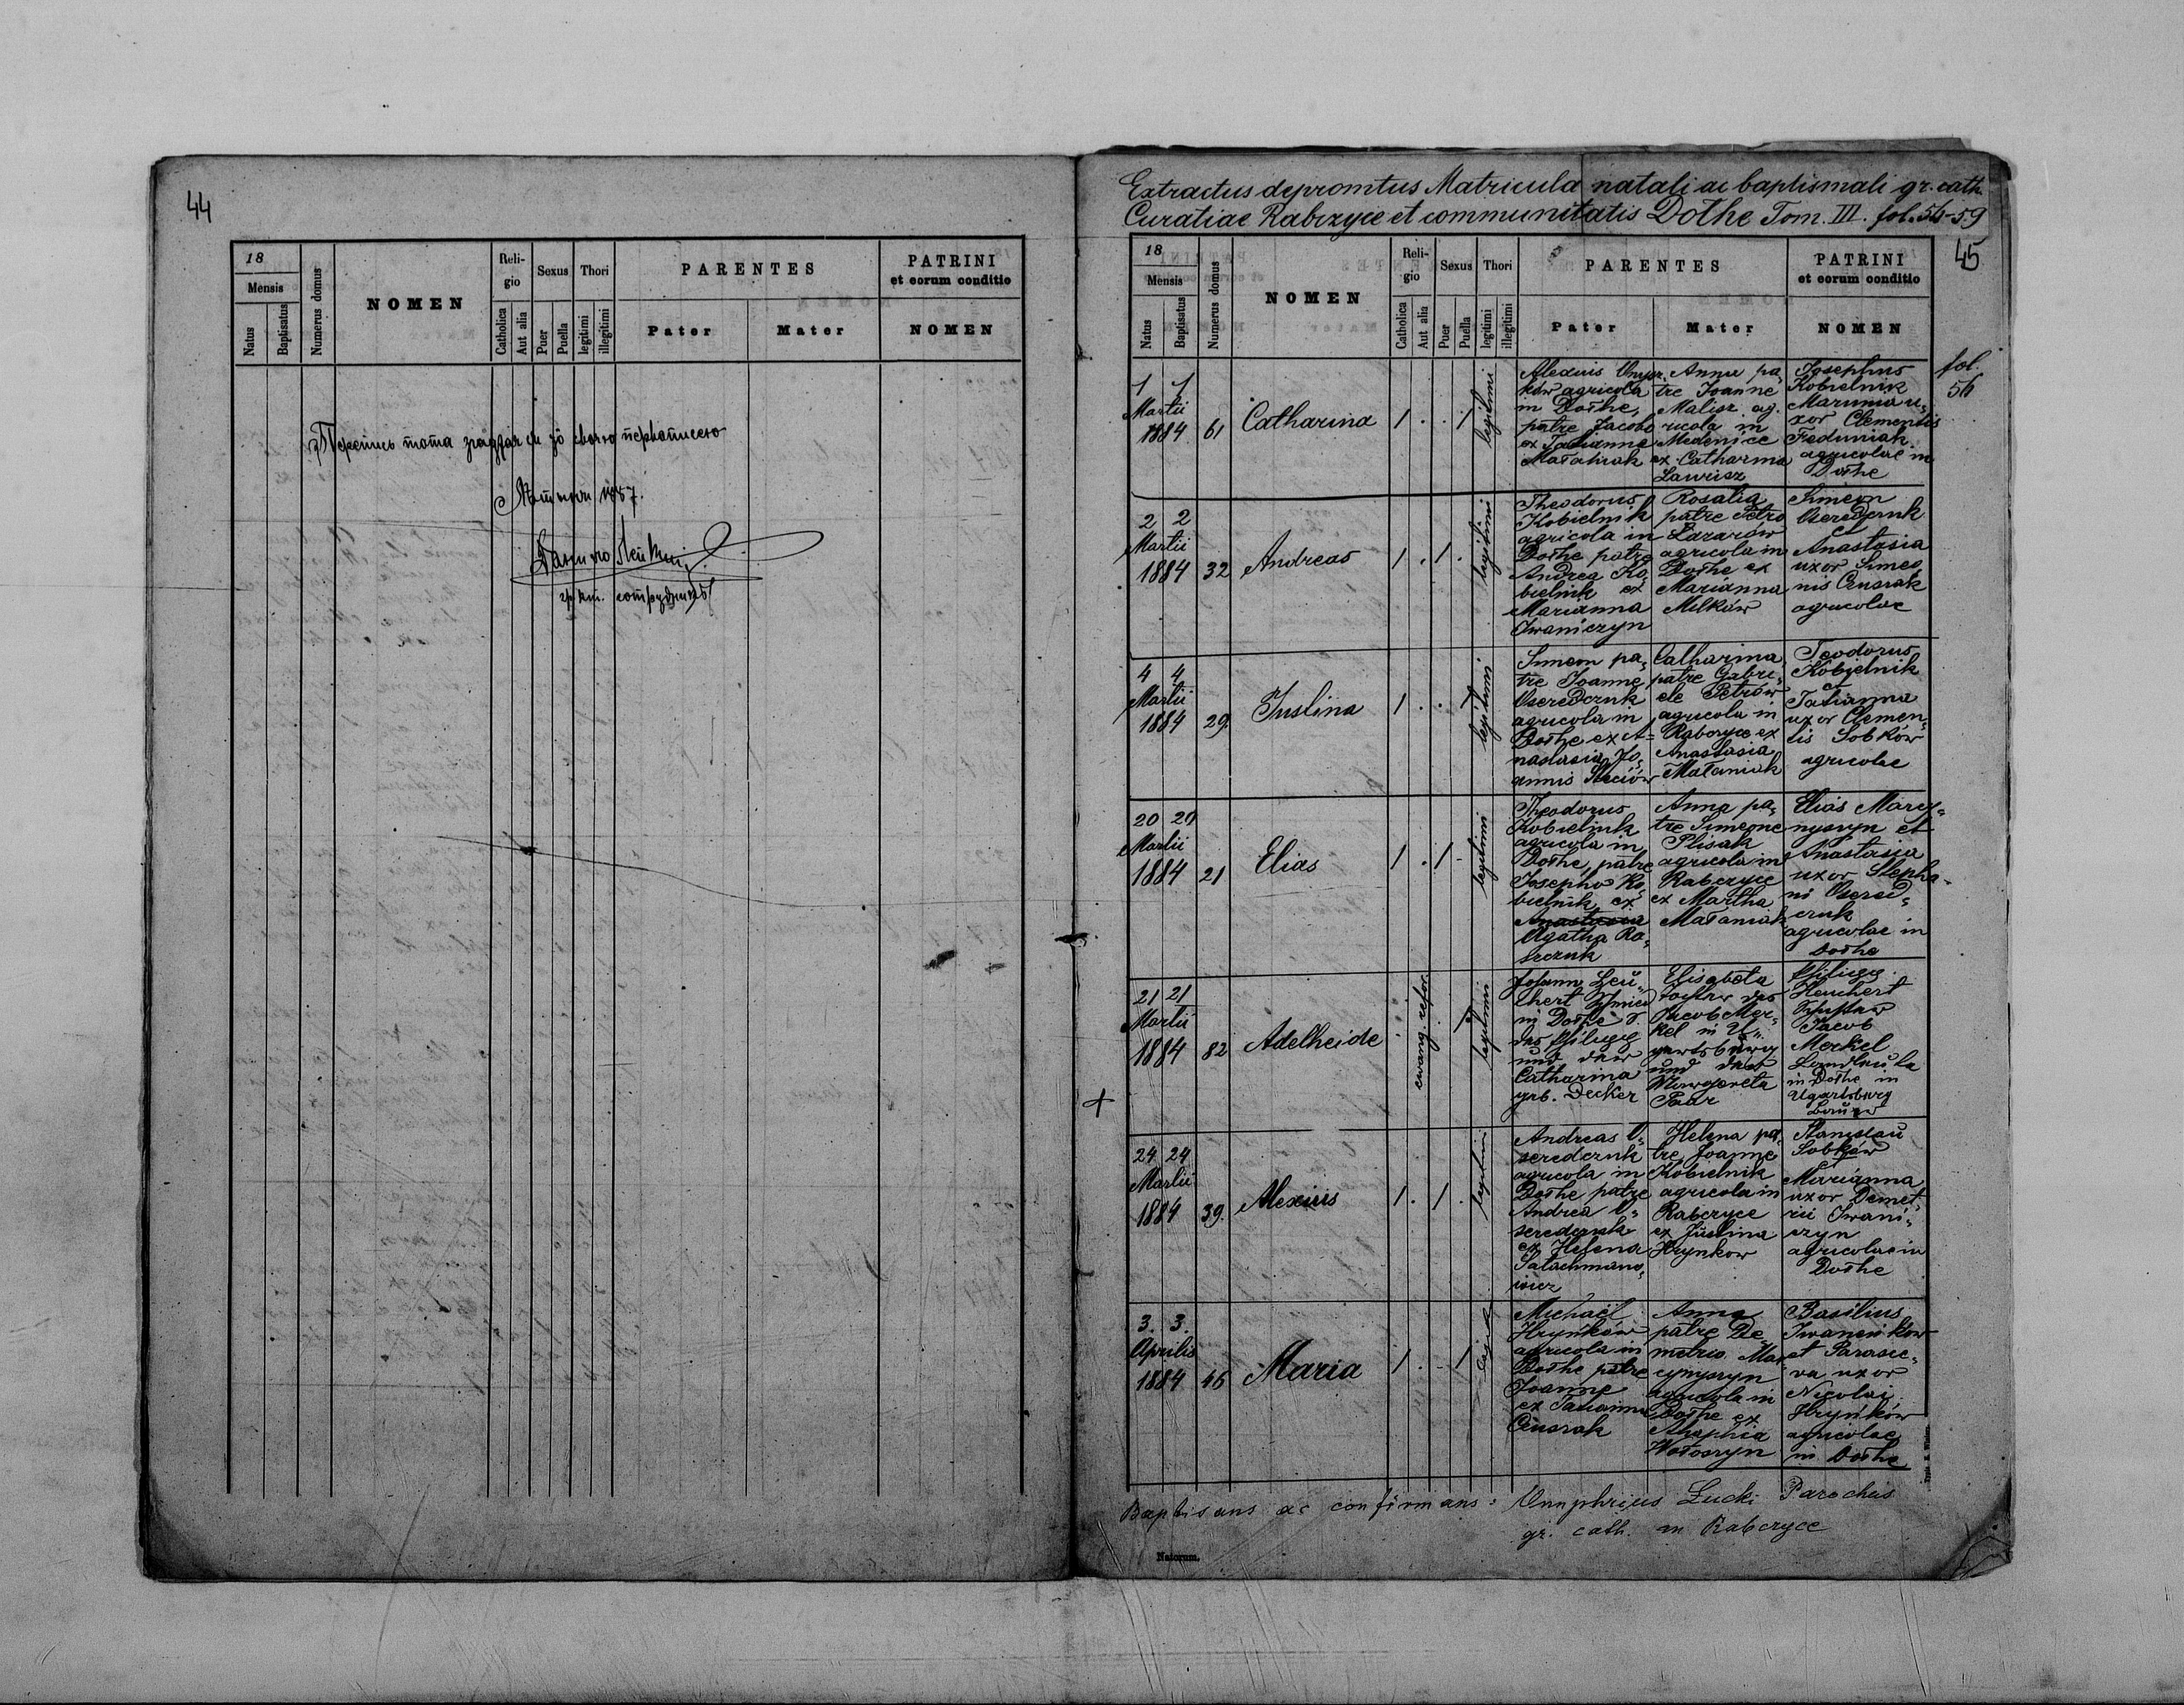 44
18
Mensis
Natus
Baptisatus
Numerus domus
NOMEN
Reli-
gio
Catholica
Aut alia
Sexus
Puer
Puella
Thori
legitimi
illegitimi
PARENTES
Pater
Mater
PATRINI
et eorum conditio
NOMEN
1887.
Extractus depromtus Matricula natali ac baptismali gr. cath.
Curatiae Rabczyce et communitatis Dołhe Tom. III. fol. 54-59
45
18
Mensis
Natus
Baptisatus
Numerus domus
NOMEN
Reli-
gio
Catholica
Aut alia
Sexus
Puer
Puella
Thori
legitimi
illegitimi
PARENTES
Pater
Mater
PATRINI
et eorum conditio
NOMEN
fol.
54
1 1
Martii
1884
61
Catharina
1 . . 1
legitimi
Alexius
ków agricola
in Dołhe,
patre Jacobo
ex Tatianna
Małaniak
Anna pa-
tre Joanne
Malisz ag-
ricola in
Medenice
ex Catharina
Ławrisz
Josephus
Kobielnik
Marunia u-
xor Clementis
Feduniak
agricolae in
Dołhe
2 2
Martii
1884
32
Andreas
1 . 1 .
legitimi
Theodorus
Kobielnik
agricola in
Dołhe patre
Andrea Ko-
bielnik ex
Marianna
Iwaniczyn
Rosalia
patre Petro
Łazarów
agricola in
Dołhe ex
Marianna
Milków
Simeon
Oseredczuk
et
Anastasia
uxor Simeo-
nis Cusrak
agricolae
4 4
Martii
1884
29.
Justina
1 . . 1
legitimi
Simeon pa-
tre Joanne
Oseredczuk
agricola in
Dołhe ex A-
nastasia Jo-
annis Steciów
Catharina
patre Gabri-
ele Petrów
agricola in
Rabczyce ex
Anastasia
Małaniak
Teodorus
Kobielnik
et
Tatianna
uxor Clemen-
tis Sobków
agricolae
20 20
Martii
1884
21
Elias
1 . 1 -
legitimi
Theodorus
Kobielnik
agricola in
Dołhe patre
Josepho Ko-
bielnik ex
Anastasia
Agatha Ro-
Anna pa-
tre Simeone
Plisak
agricola in
Rabczyce
ex Martha
Małaniak
Elias Marcy-
nyszyn et
Anastasia
uxor Stepha-
ni Osered-
czuk
agricolae in
Dołhe
21 21
Martii
1884
82
Adelheide
ewang. refor.
legitimi
Johann Leu-
chert
in Dołhe S.
des Philipp
und der
Catharina
geb. Decker
Elisabeta
Tochter des
Jacob Mer-
kel in U-
gartsberg
und der
Margareta
Paar
Philipp
Heuchert
Jacob
Merkel
Landleute
in Dołhe in
Ugartsberg
24 24
Martii
1884
39.
Alexius
1 . 1 .
legitimi
Andreas O-
seredczuk
agricola in
Dołhe patre
Andrea O-
seredczuk
ex Helena
Helena pa-
tre Joanne
Kobielnik
agricola in
Rabczyce
ex Justina
Hrynkow
Stanislau
Sobków
et
Marianna
uxor Demet-
rii Iwani-
czyn
agricolae in
Dołhe
3. 3.
Aprilis
1884
46
Maria
1 . - 1
Michaël
Hryńków
agricola in
Dołhe patre
Joanne
ex Tatianna
Cusrak
Anna
patre De-
metrio Mar-
cynyszyn
agricola in
Dołhe ex
Wołoszyn
Basilius
et Parasce-
va uxor
Nicolai
Hryńków
agricolae
in Dołhe
Baptisans ac confirmans: Onuphrijus Łucki Parochus
gr. cath. in Rabczyce
Natorum.